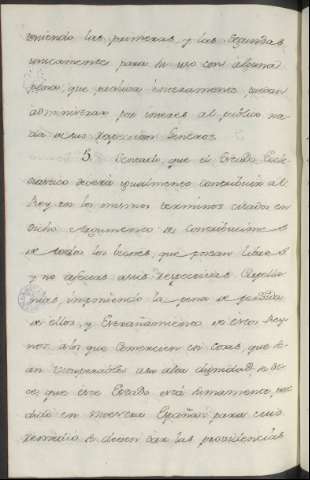 teniendo las primeras, y las segundas
unicamente para su uso con alguna
pena, que prohiva enteramente puedan
administrar por interes al publico na
da de sus respectivos Generos.
5. Consulta, que el Estado Ecle
siastico deverá igualmente contribuir al
Rey en los mismos terminos citados en
dicho Reglamento de Contribuciones
de todos los bienes, que posean libres
y no afectos a sus respectivas Capella
nias, imponiendo la pena de perdida
de ellos, y Extrañamiento de estos Rey
nos a los que Comercien en cosas, que se
an
a su alta dignidad, se di
ce, que este Estado está sumamente per
dido en nuestra España, para cuio
remedio se deven dar las providencias